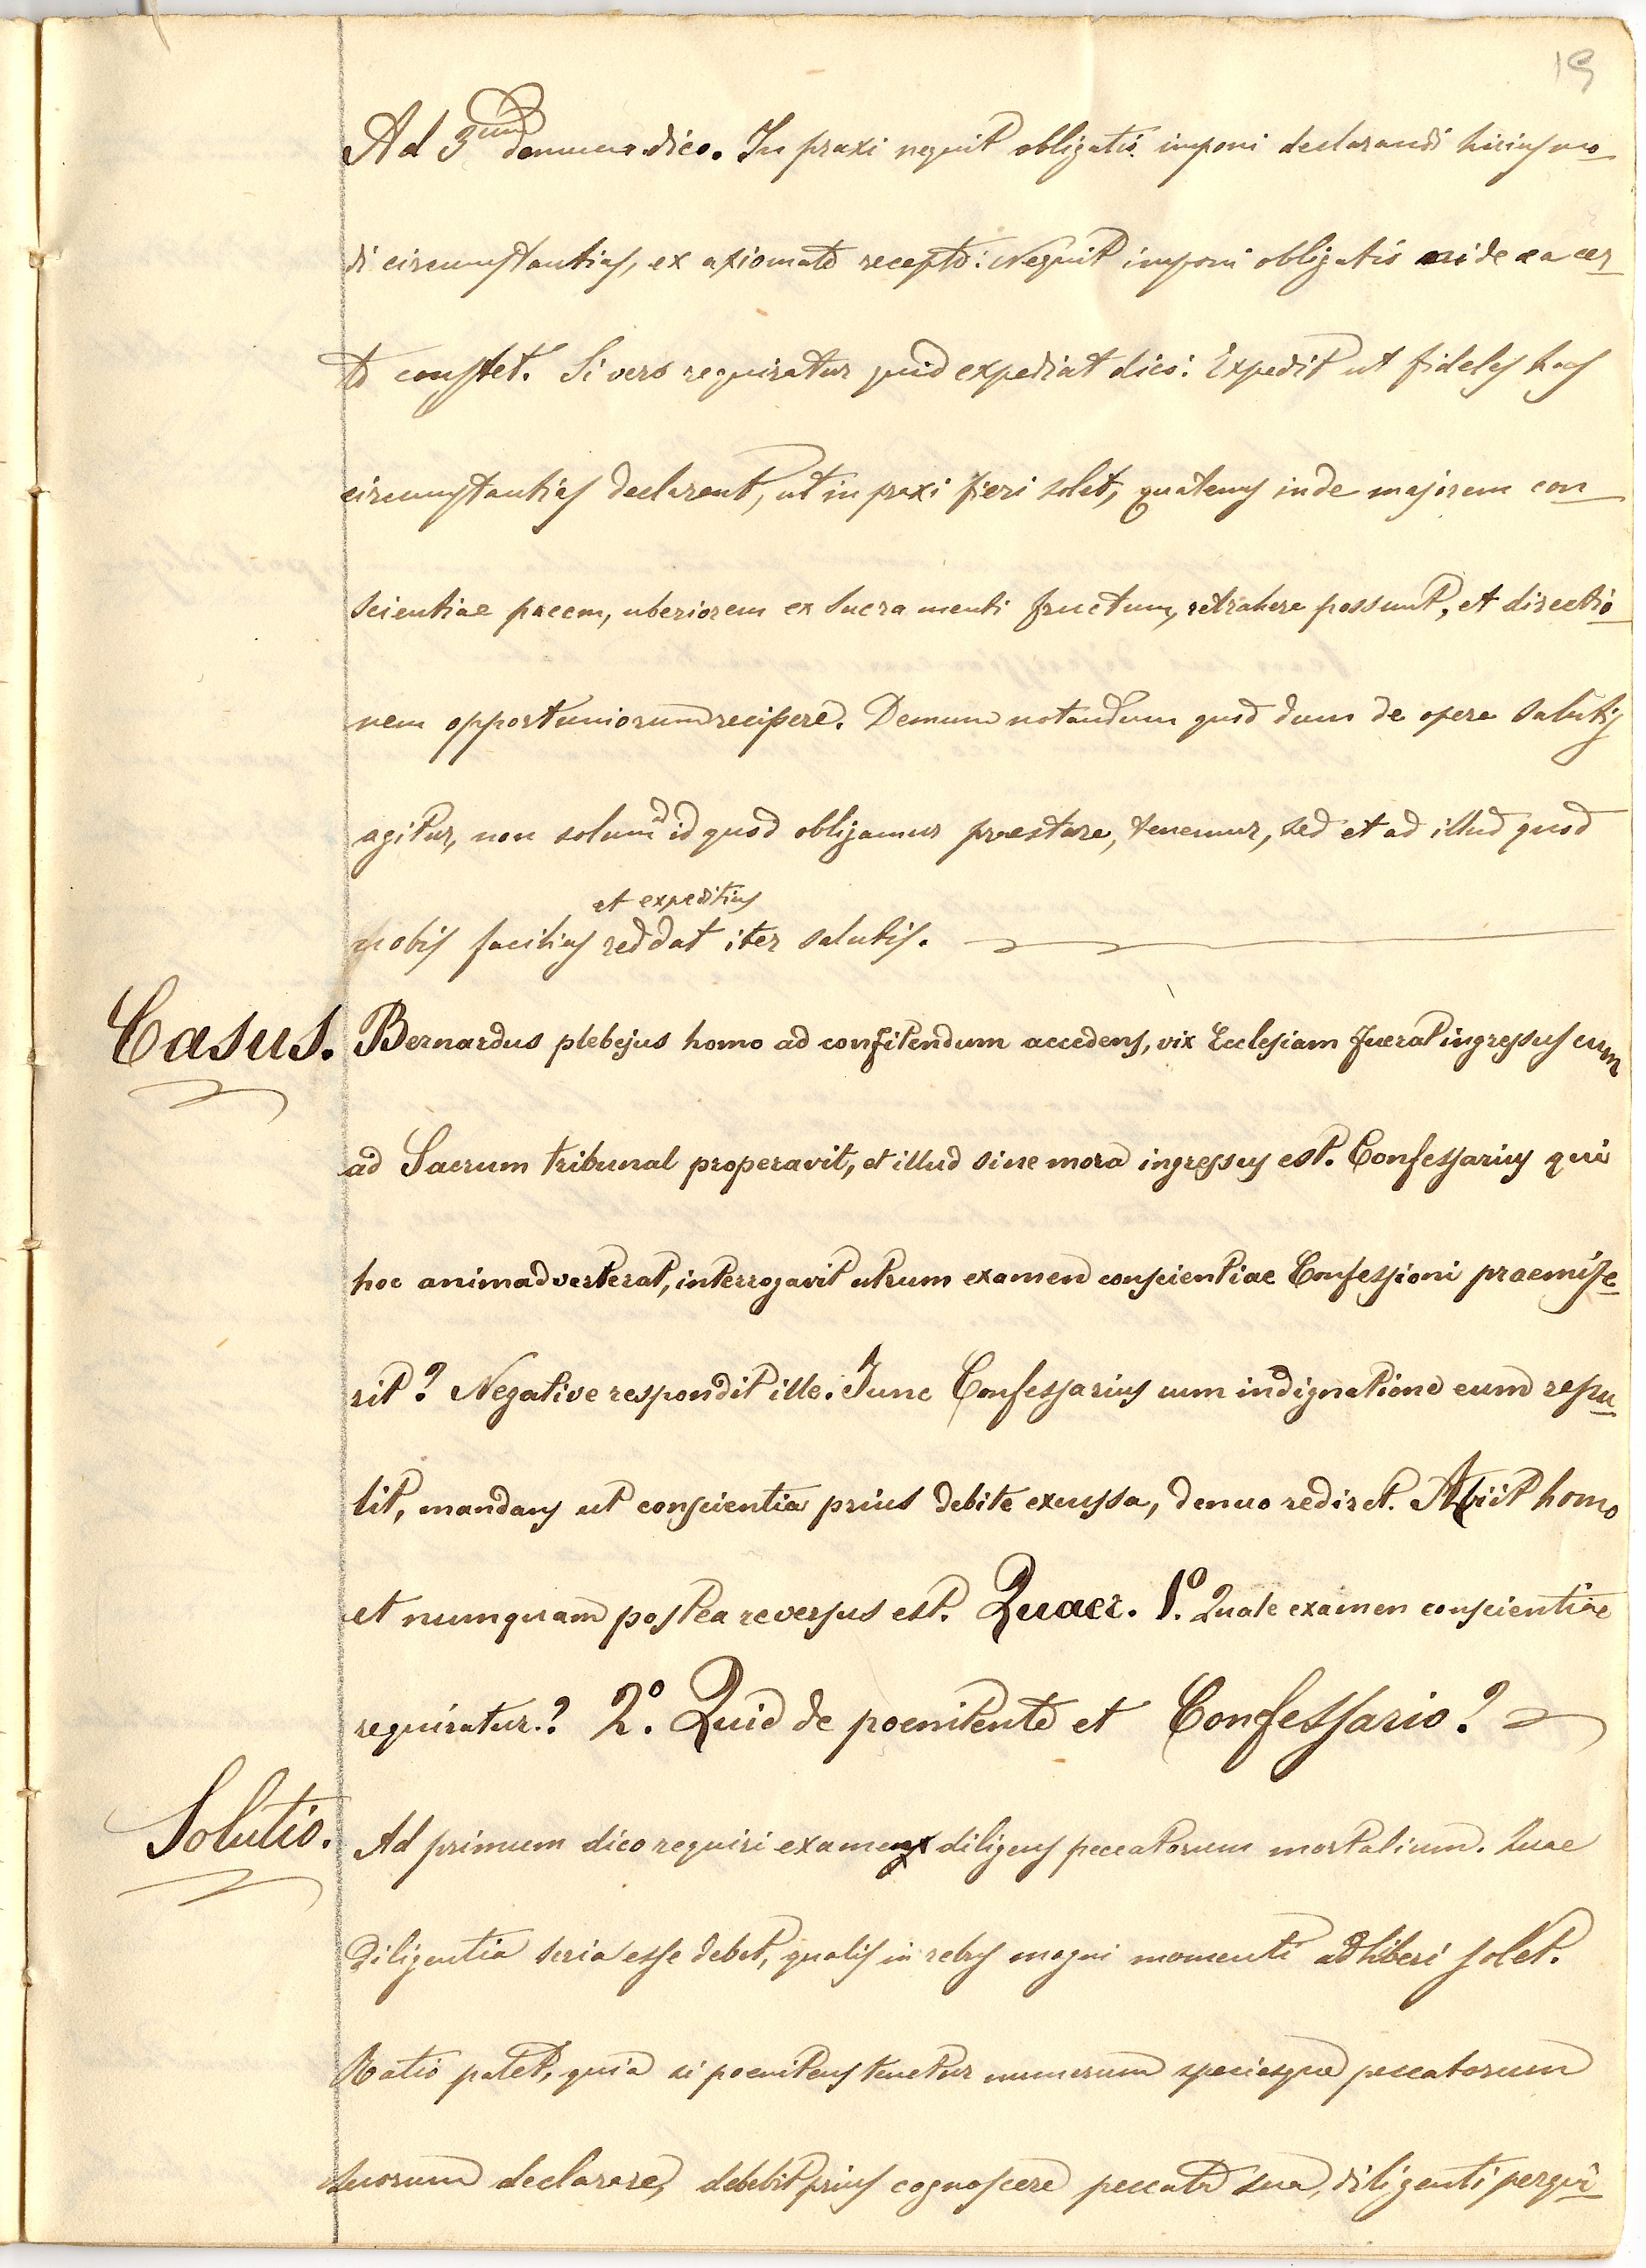 19
Ad 3um demum dico. In praxi nequit obligatio imponi declarandi hujusmo-
di circumstantias, ex axiomate recepto: Nequit imponi obligatio nisi de ea cer-
to constet. Si vero requiratur quid expediat dico: Expedit ut fideles has
circumstantias declarent, ut in praxi fieri solet, quatenus inde majorem con-
scientiae pacem, uberiorem ex Sacramenti fructum, retrahere possunt, et directio-
nem opportuniorum recipere. Demum notandum quod dum de opere salutis
agitur, non solum id quod obligamur praestare, tenemur, sed et ad illud quod
et expeditius
nobis facilius reddat iter salutis.
Casus. Bernardus plebejus homo ad confitendum accedens, vix Ecclesiam fuerat ingressus cum
ad Sacrum tribunal properavit, et illud sine mora ingressus est. Confessarius qui
hoc animadverterat, interrogavit utrum examen conscientiae Confessioni praemise-
rit? Negative respondit ille. Tunc Confessarius cum indignatione eum repu-
lit, mandans ut conscientia prius debite excussa, denuo rediret. Abiit homo
et numquam postea reversus est. Quaer. 1.o Quale examen conscientiae
requiratur.? 2.o Quid de poenitente et Confessario?
Solutio. Ad primum dico requiri examen diligens peccatorum mortalium. Quae
diligentia seria esse debet, qualis in rebus magni momenti adhiberi solet.
Ratio patet, quia si poenitens tenetur numerum speciesque peccatorum
suorum declarare, debebit prius cognoscere peccata sua, diligenti perqui-